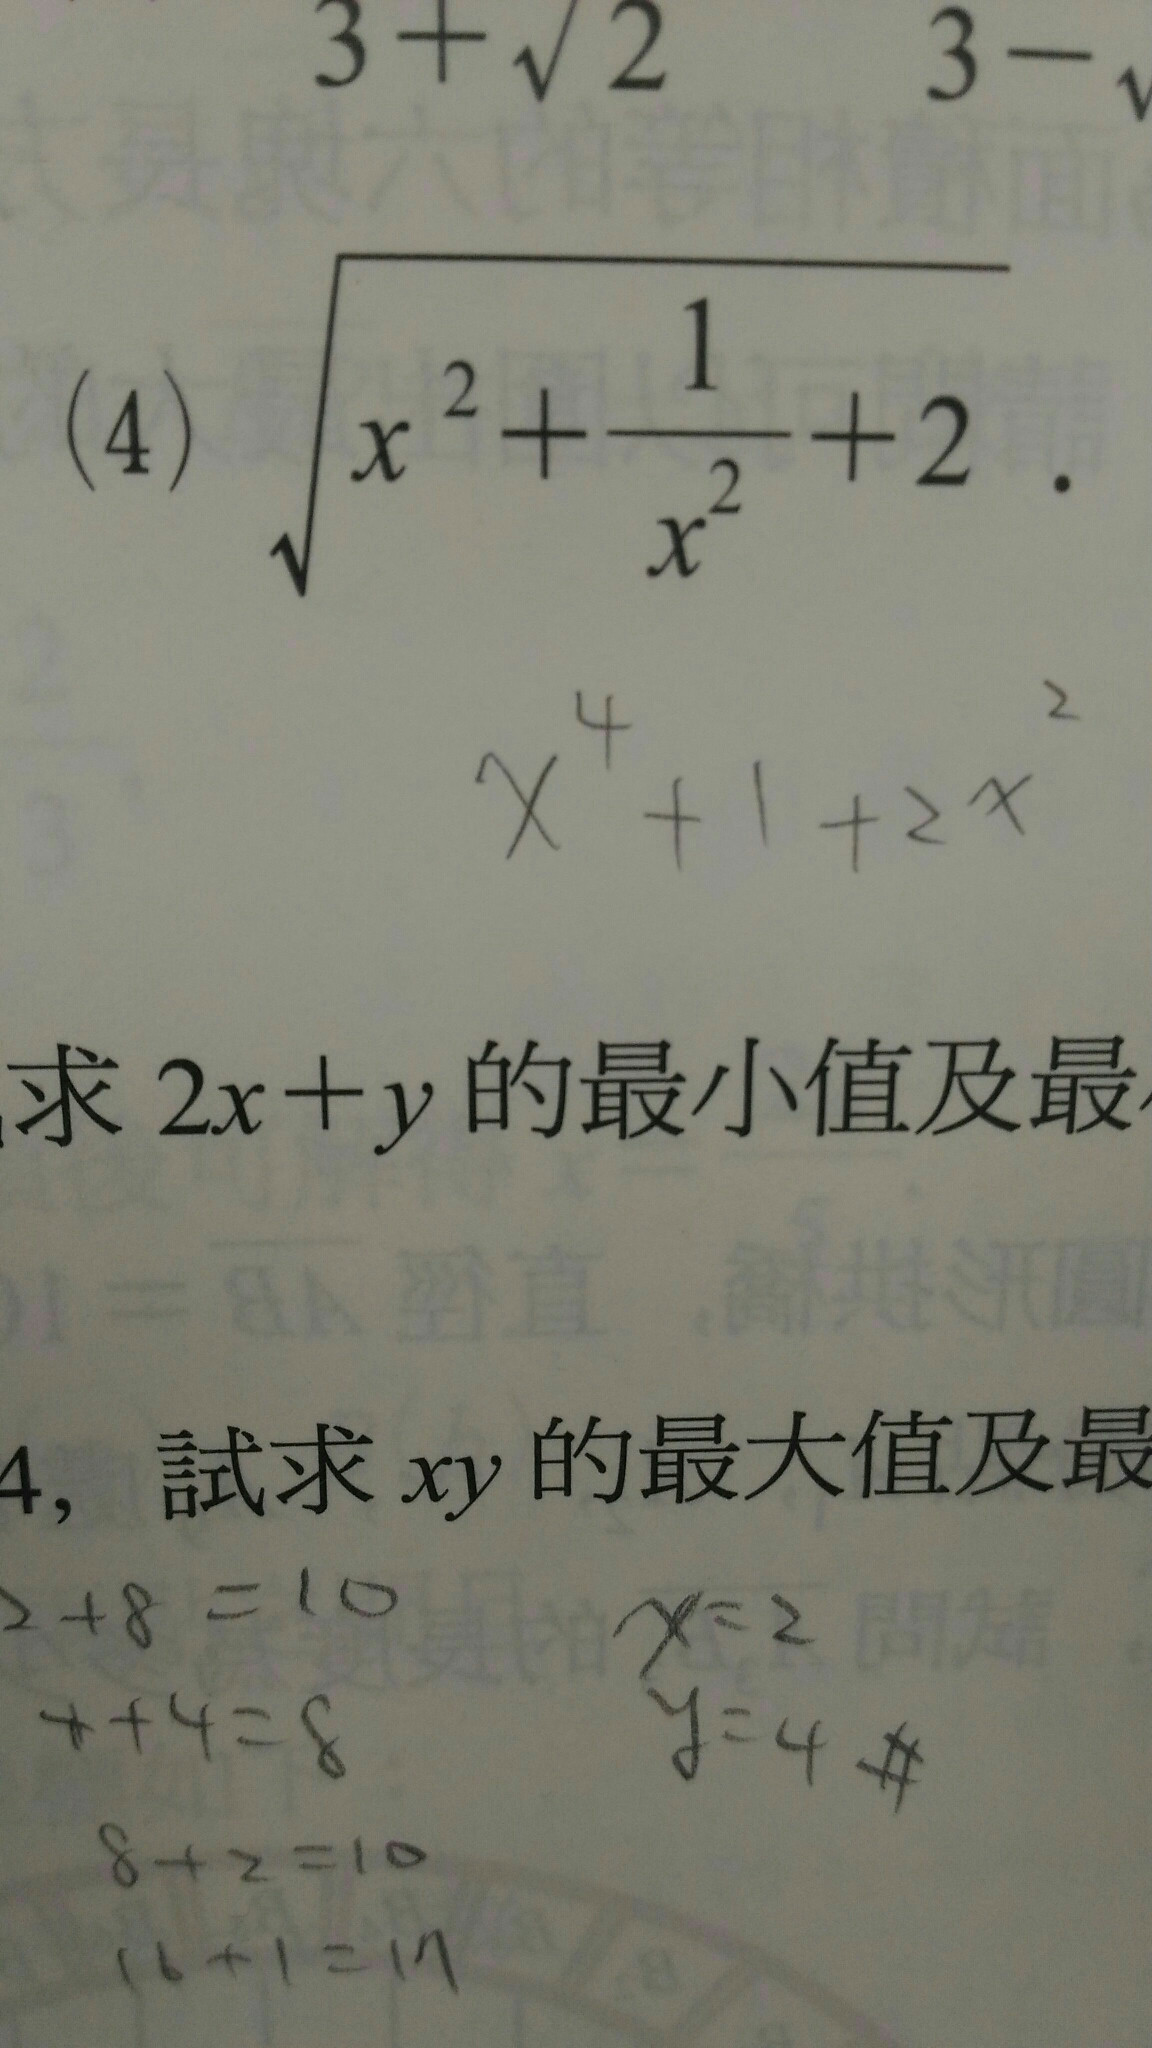 3+√2 3−√
(4) √(x²+1/x²+2) .
x⁴+1+2x²
求 2x+y 的最小值及最
4, 試求 xy 的最大值及最
2+8=10 x=2
4+4=8 y=4 #
8+2=10
16+1=17